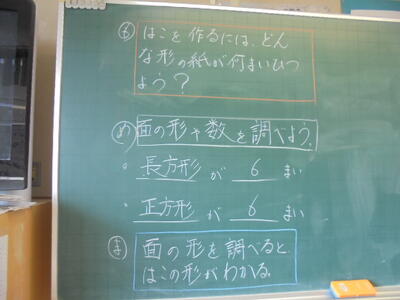 も はこを作るには、どん
な形の紙が何まいひつ
よう？
め 面の形や数を調べよう。
・長方形が 6 まい
・正方形が 6 まい
ま 面の形を調べると
はこの形がわかる。